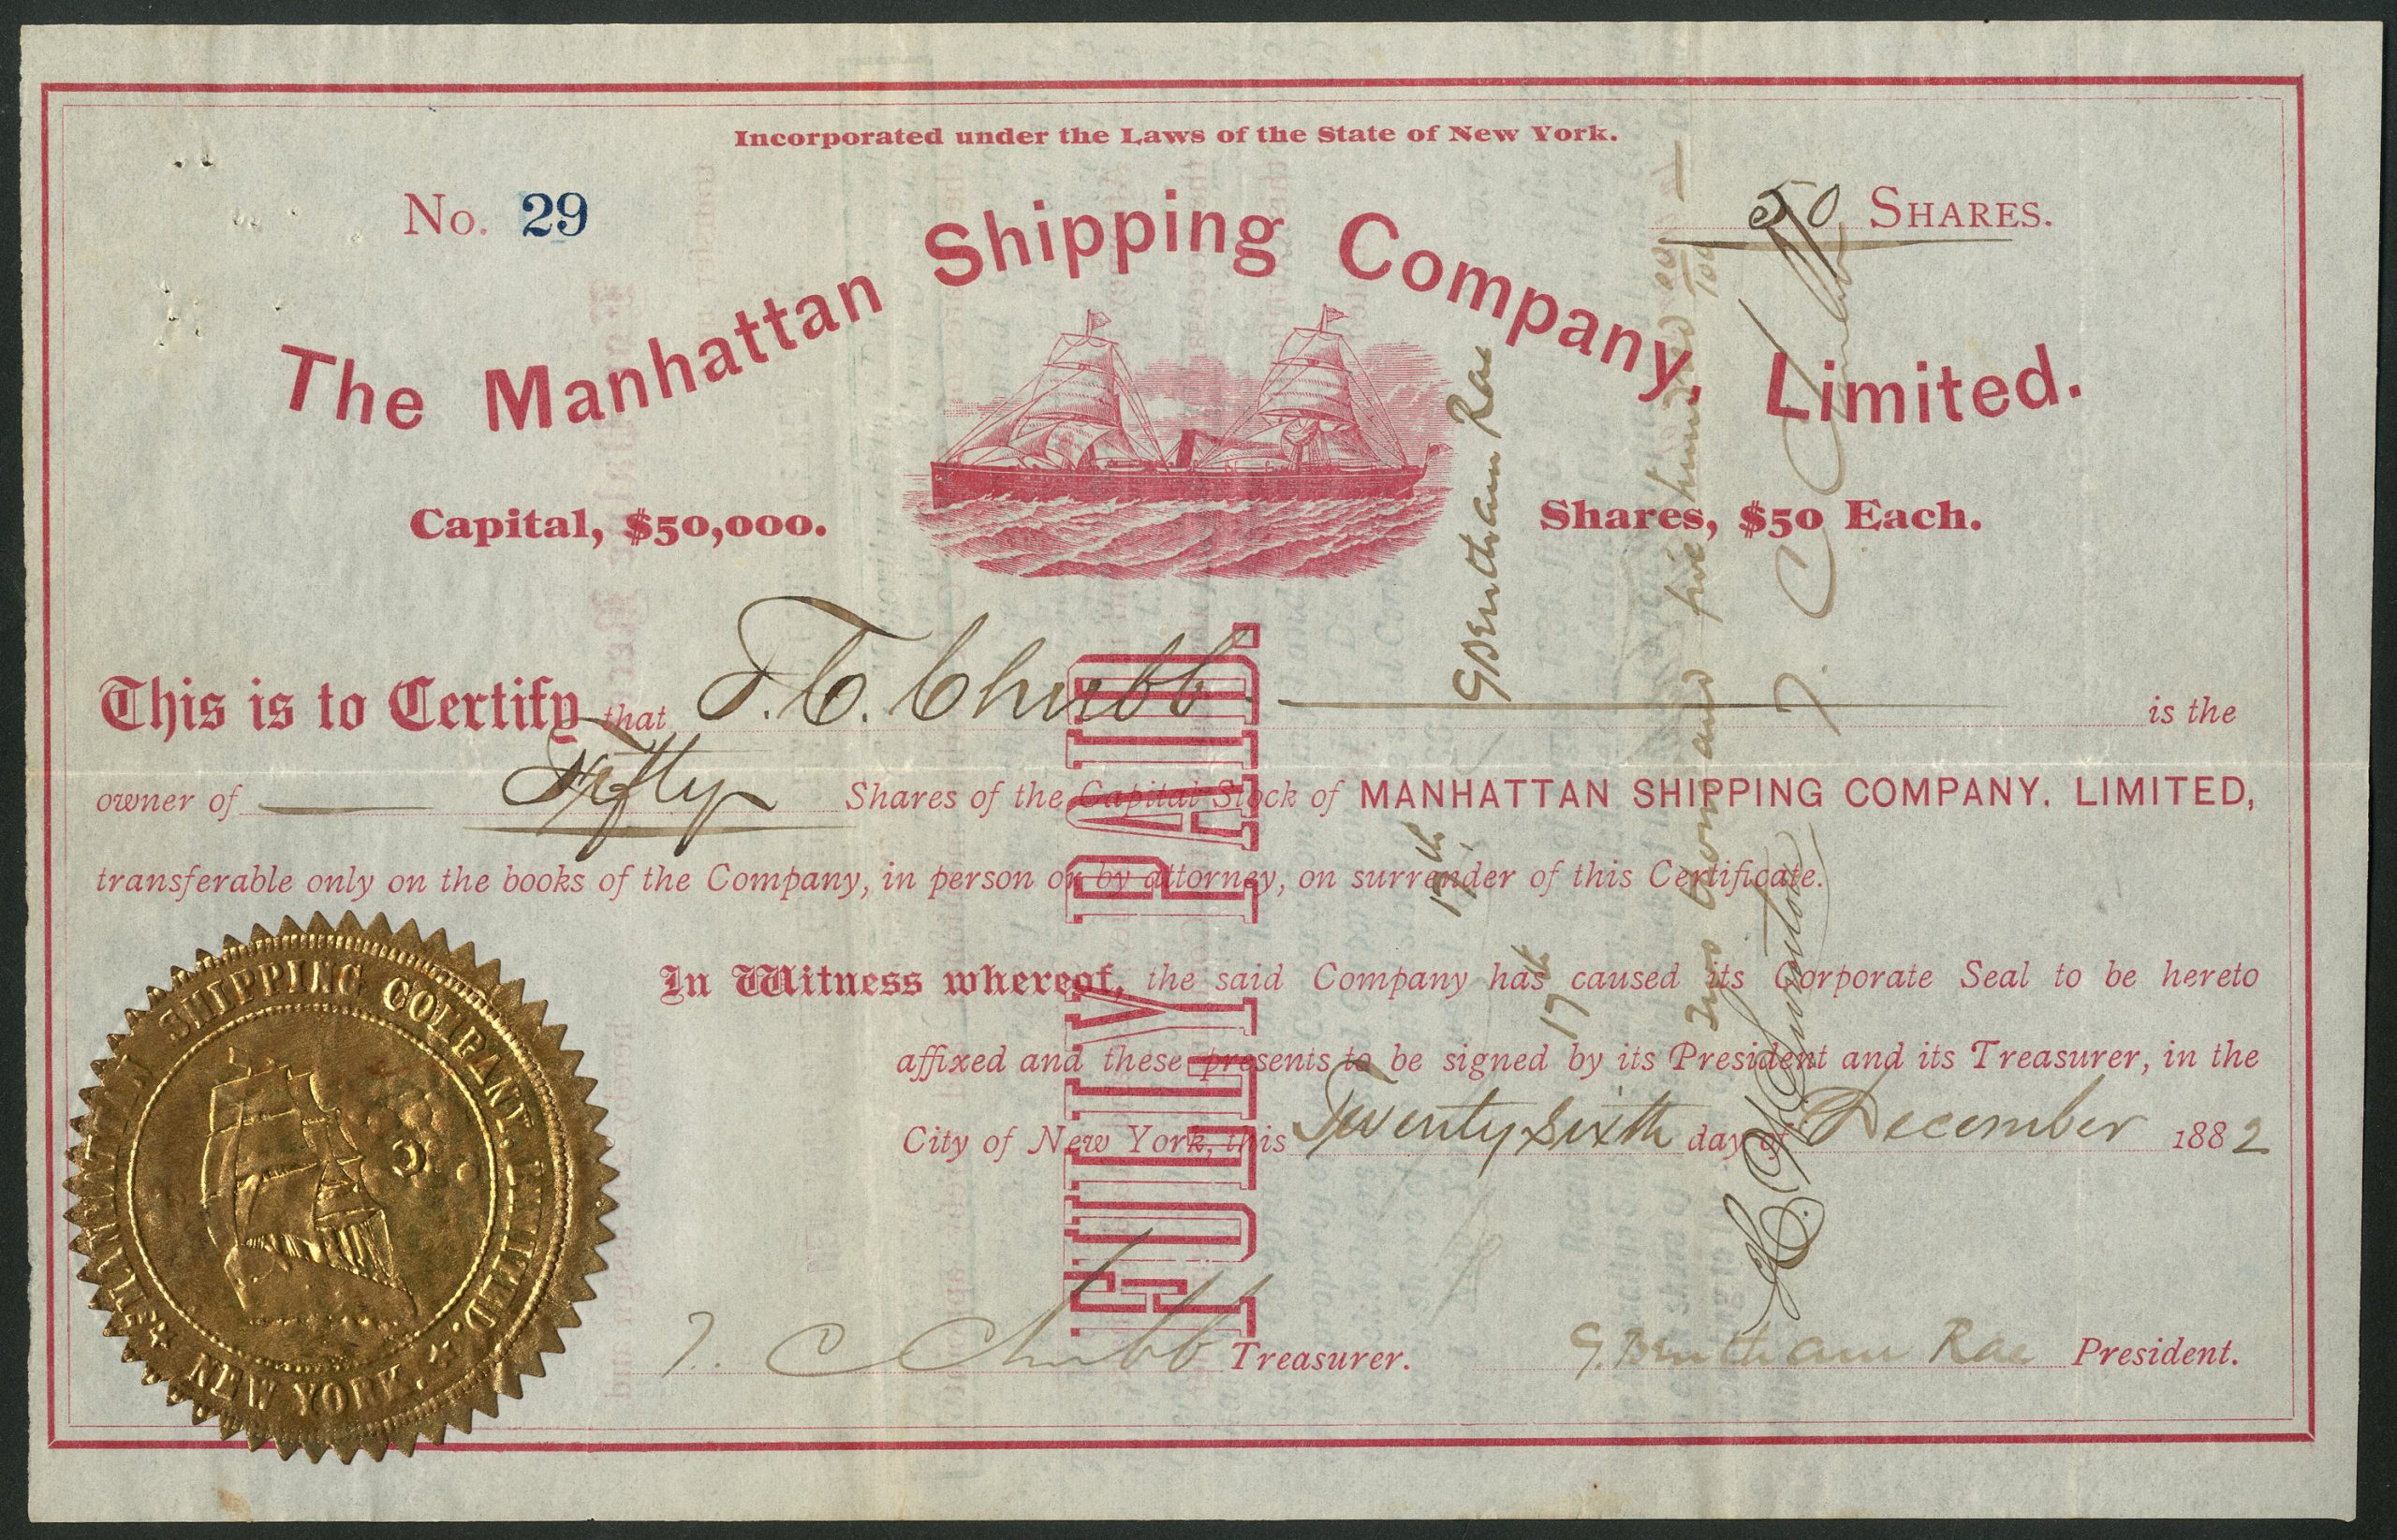 Incorporated under the Laws of the State of New York.
No. 29
50 SHARES.
The Manhattan Shipping Company, Limited.
Capital, $50,000.
Shares, $50 Each.
This is to Certify that T. C. Chubb is the
owner of Fifty Shares of the Capital Stock of MANHATTAN SHIPPING COMPANY, LIMITED,
transferable only on the books of the Company, in person or by attorney, on surrender of this Certificate.
In Witness whereof, the said Company has caused its Corporate Seal to be hereto
affixed and these presents to be signed by its President and its Treasurer, in the
City of New York, this Twenty Sixth day of December 1882
T. C. Chubb Treasurer.
G. Bentham Rae President.
FULLY PAID.
G Bentham Rae
17th
17th
Two thousand five hundred 00/100
T. C. Chubb
MANHATTAN SHIPPING COMPANY, LIMITED.
NEW YORK.